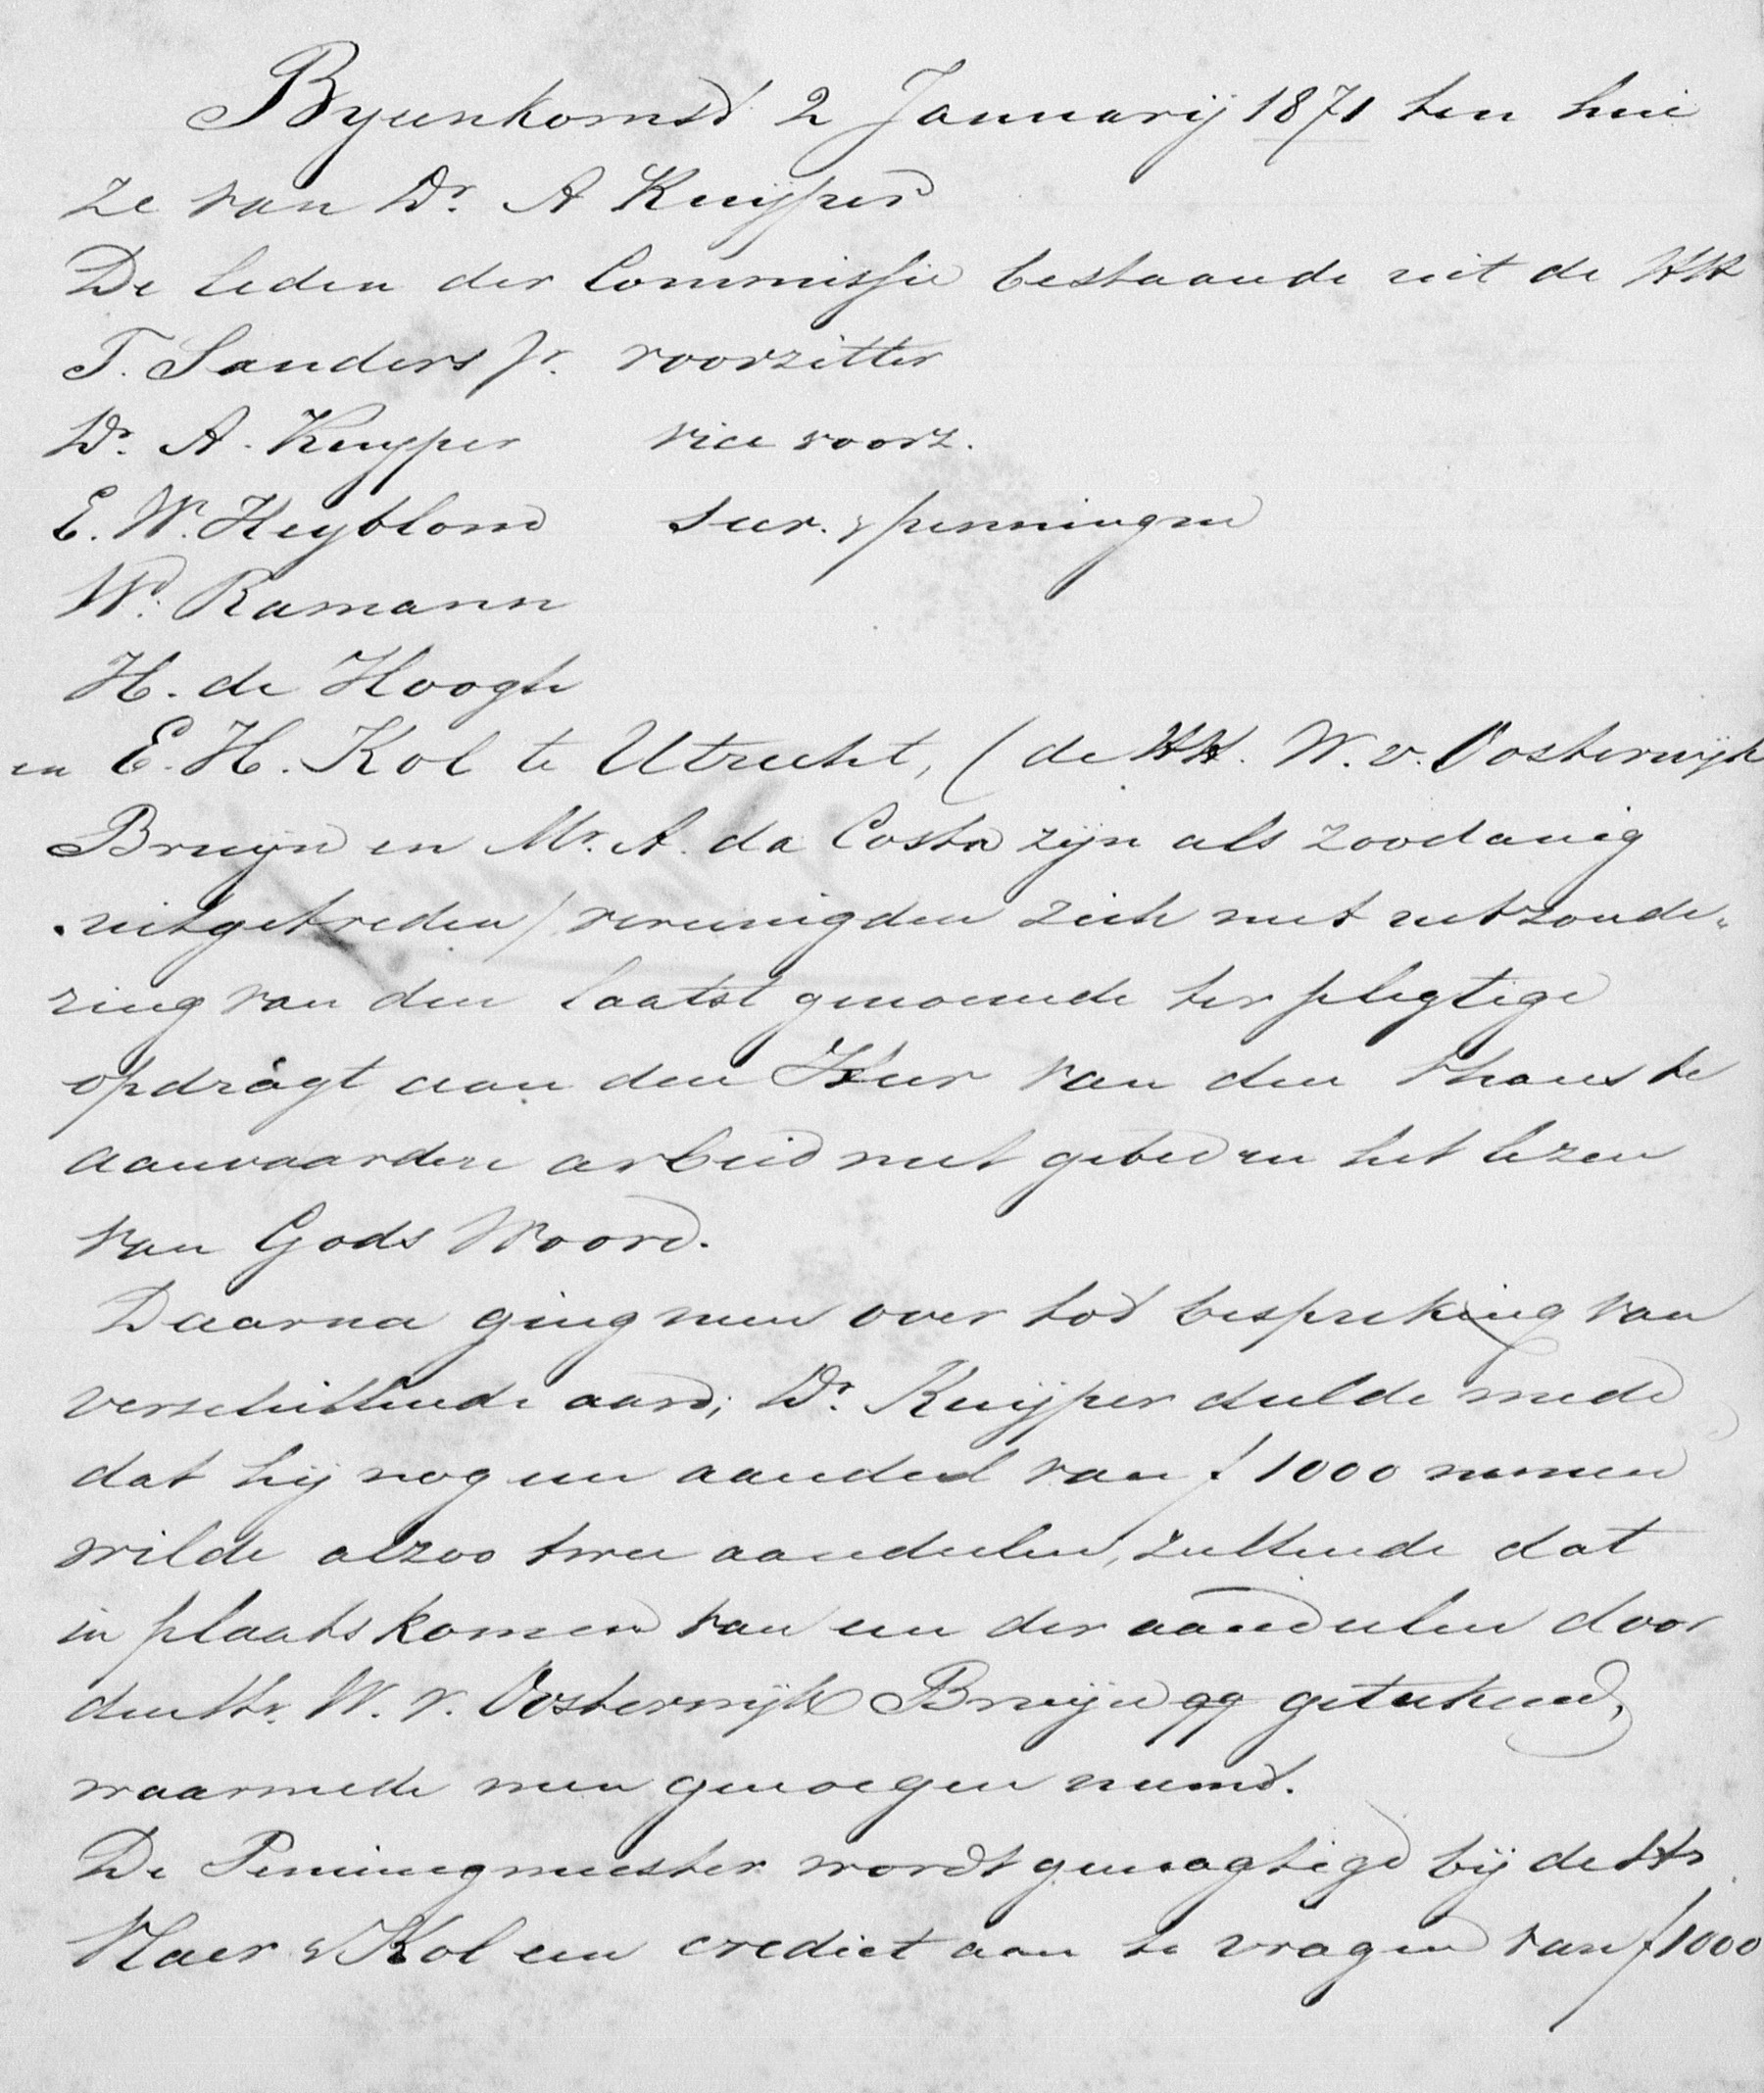 Byeenkomst 2 Januarij 1871 ten hui
ze van Dr. A Kuijper
De leden der Commissie bestaande uit de HH
T. Sanders Jr. voorzitter
Dr. A. Kuyper vice voorz.
E. W. Heyblom secr. & penningm
W. Ramann
H. de Hoogh
en E. H. Kol te Utrecht, (de HH. W. v. Oosterwijk
Bruijn en Mr. A. da Costa zijn als zoodanig
uitgetreden) vereenigden zich met uitzonde„
ring van den laatst genoemde ter plegtige
opdragt aan den Heer van den thans te
aanvaarden arbeid met gebed en het lezen
van Gods Woord.
Daarna ging men over tot bespreking van
verschillende aard; Dr. Kuijper deelde mede
dat hij nog een aandeel van f 1000 nemen
wilde alzoo twee aandeelen, zullende dat
in plaats komen van een der aandeelen door
den Hr. W. v. Oosterwijk Bruijn qq geteekend,
waarmede men genoegen neemt.
De Penningmeester wordt gemagtigd bij de HH
Vlaer & Kol een crediet aan te vragen van f 1000